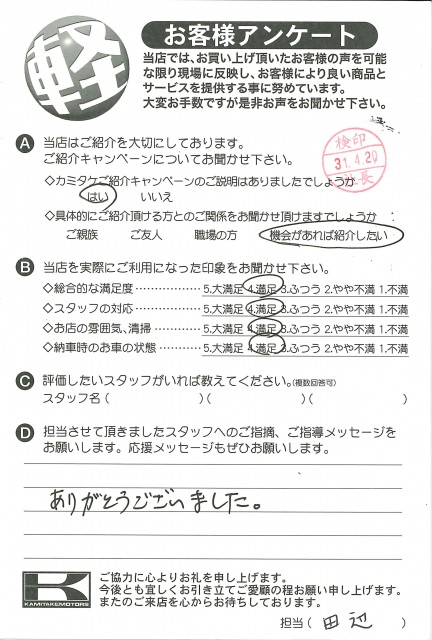 軽
お客様アンケート
当店では、お買い上げ頂いたお客様の声を可能
な限り現場に反映し、お客様により良い商品と
サービスを提供する事に努めています。
大変お手数ですが是非お声をお聞かせ下さい。
A 当店はご紹介を大切にしております。
ご紹介キャンペーンについてお聞かせ下さい。
検印
31.4.20
社長
◇カミタケご紹介キャンペーンのご説明はありましたでしょうか
はい いいえ
◇具体的にご紹介頂ける方とのご関係をお聞かせ頂けますでしょうか
ご親族 ご友人 職場の方 機会があれば紹介したい
B 当店を実際にご利用になった印象をお聞かせ下さい。
◇総合的な満足度 …………… 5.大満足 4.満足 3.ふつう 2.やや不満 1.不満
◇スタッフの対応 …………… 5.大満足 4.満足 3.ふつう 2.やや不満 1.不満
◇お店の雰囲気、清掃 ……… 5.大満足 4.満足 3.ふつう 2.やや不満 1.不満
◇納車時のお車の状態 ……… 5.大満足 4.満足 3.ふつう 2.やや不満 1.不満
C 評価したいスタッフがいれば教えてください。(複数回答可)
スタッフ名 ( )( )( )
D 担当させて頂きましたスタッフへのご指摘、ご指導メッセージを
お願いします。応援メッセージもぜひお願いします。
ありがとうございました。
K
KAMITAKEMOTORS
ご協力に心よりお礼を申し上げます。
今後とも宜しくお引き立てご愛顧の程お願い申し上げます。
またのご来店を心からお待ちしております。
担当 ( 田辺 )